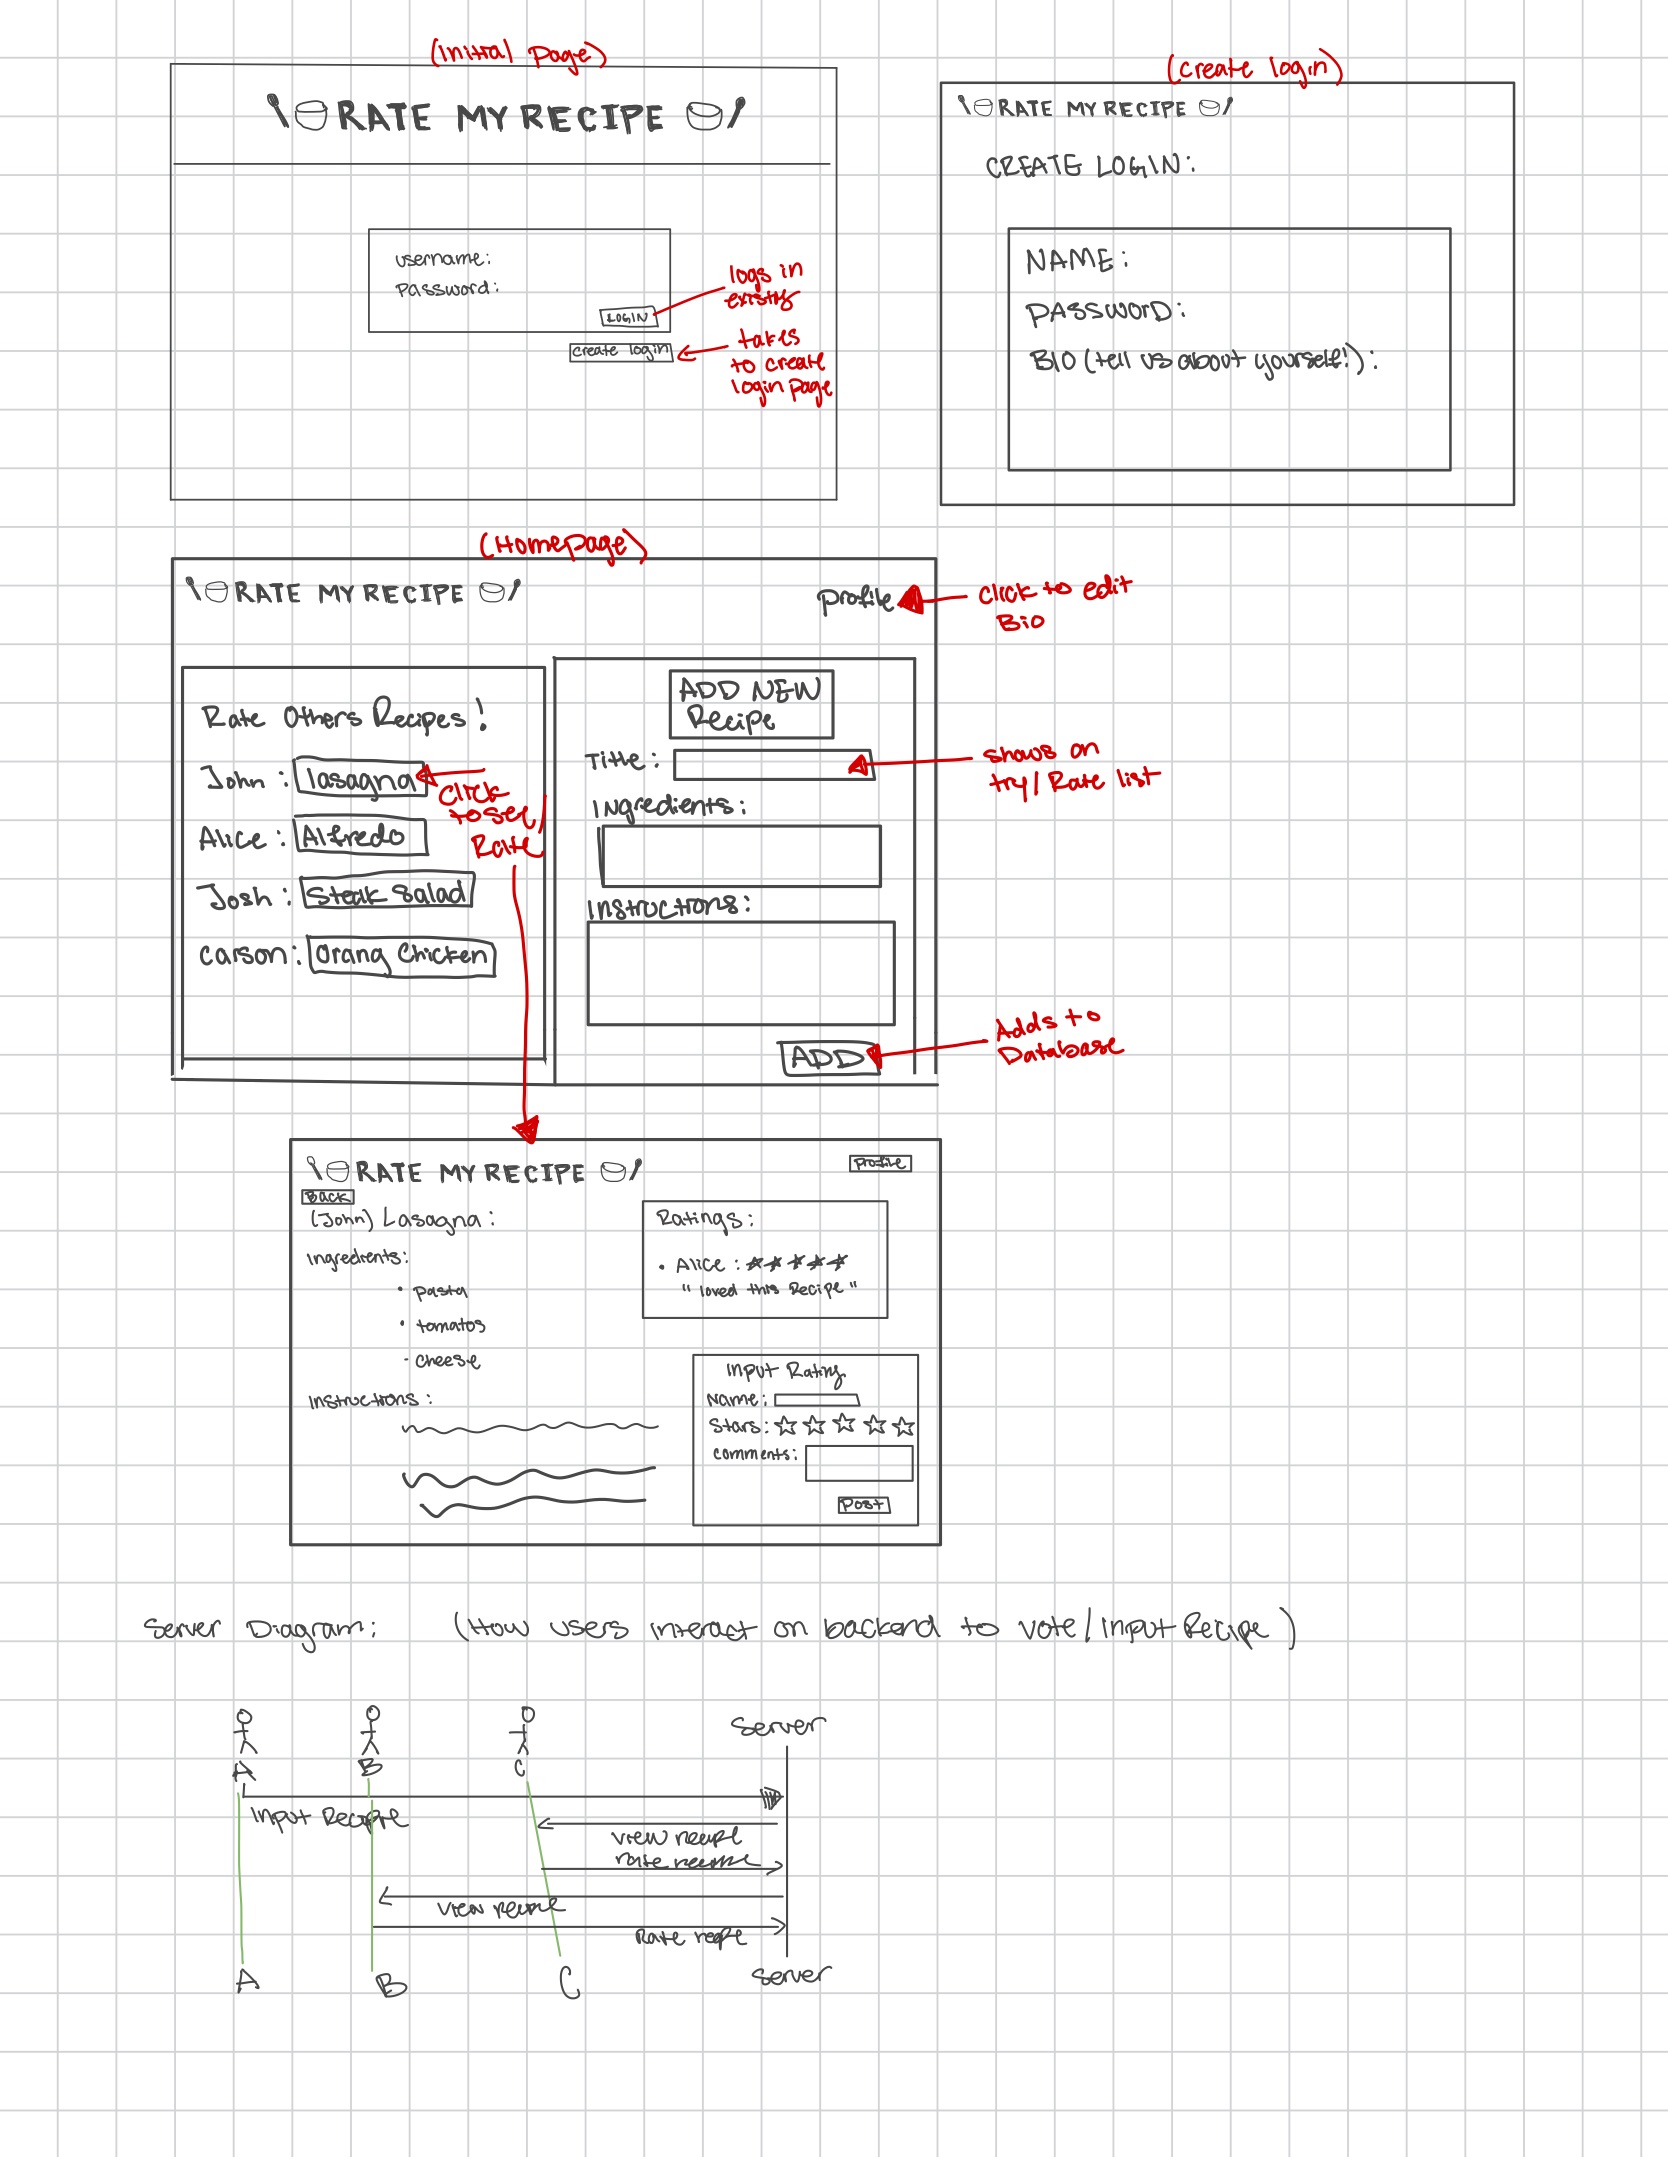 (initial page)
RATE MY RECIPE
username:
Password:
LOGIN
logs in
existing
create login
takes
to create
login page
(create login)
RATE MY RECIPE
CREATE LOGIN:
NAME:
PASSWORD:
BIO (tell us about yourself!):
(Homepage)
RATE MY RECIPE
profile
click to edit
Bio
Rate Others Recipes!
John: lasagna
click
to see/
Rate
Alice: Alfredo
Josh: Steak Salad
Carson: Orang Chicken
ADD NEW
Recipe
Title:
shows on
try/Rate list
Ingredients:
Instructions:
ADD
Adds to
Database
RATE MY RECIPE
profile
Back
(John) Lasagna:
Ingredients:
• pasta
• tomatos
- cheese
Instructions:
Ratings:
• Alice: ★★★★★
"loved this Recipe"
Input Rating
Name:
Stars: ☆☆☆☆☆
comments:
Post
Server Diagram: (How users interact on backend to vote/input Recipe)
A
B
C
Server
Input Recipe
view recipe
rate recipe
view recipe
Rate recipe
A
B
C
Server